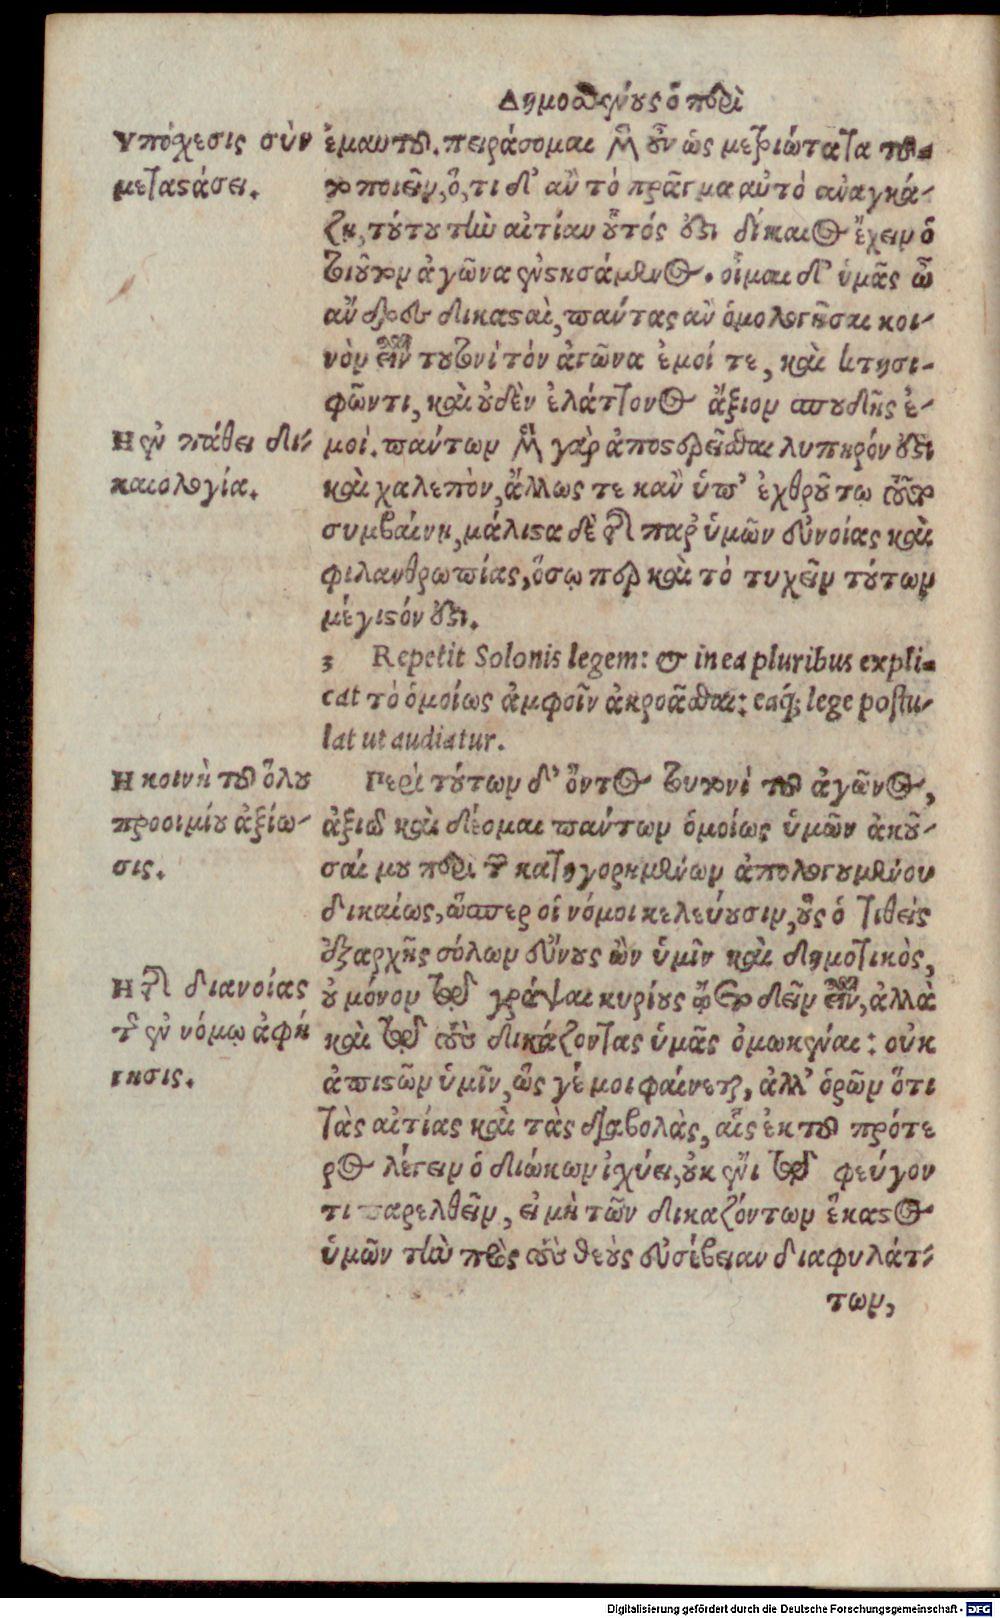 Δημοσθένους ὁ περὶ
Υπόχεσις σὺν
μεταστάσει.
ἐμαυτοῦ. πειράσομαι μὲν οὖν ὡς μετριώτατα τοῦ-
το ποιεῖν, ὅ, τι δ' ἂν τὸ πρᾶγμα αὐτὸ ἀναγκά-
ζῃ, τούτου τὴν αἰτίαν οὗτός ἐστι δίκαιος ἔχειν ὁ
τοιοῦτον ἀγῶνα ἐνστησάμενος. οἶμαι δ' ὑμᾶς ὦ
ἄνδρες δικασταὶ, πάντας ἂν ὁμολογῆσαι κοι-
νὸν εἶναι τουτονὶ τὸν ἀγῶνα ἐμοί τε, καὶ κτησι-
φῶντι, καὶ οὐδὲν ἐλάττονος ἄξιον σπουδῆς ἐ-
Η ἐν πάθει δι-
καιολογία.
μοί. πάντων μὲν γὰρ ἀποστερεῖσθαι λυπηρόν ἐστι
καὶ χαλεπὸν, ἄλλως τε κἂν ὑπ' ἐχθροῦ τῳ τοῦτο
συμβαίνῃ, μάλιστα δὲ τῆς παρ' ὑμῶν εὐνοίας καὶ
φιλανθρωπίας, ὅσῳ περ καὶ τὸ τυχεῖν τούτων
μέγιστόν ἐστι.
3 Repetit Solonis legem: & in ea pluribus expli-
cat τὸ ὁμοίως ἀμφοῖν ἀκροᾶσθαι: eaq́; lege postu-
lat ut audiatur.
Η κοινὴ τοῦ ὅλου
προοιμίου ἀξίω-
σις.
Περὶ τούτων δ' ὄντος τουτονὶ τοῦ ἀγῶνος,
ἀξιῶ καὶ δέομαι πάντων ὁμοίως ὑμῶν ἀκοῦ-
σαί μου περὶ τῶν κατηγορημένων ἀπολογουμένου
δικαίως, ὥσπερ οἱ νόμοι κελεύουσιν, οὓς ὁ τιθεὶς
ἐξαρχῆς σόλων εὔνους ὢν ὑμῖν καὶ δημοτικὸς,
Η τῆς διανοίας
τῶν ἐν νόμῳ ἀφή
γησις.
οὐ μόνον τῷ γράψαι κυρίους ᾤετο δεῖν εἶναι, ἀλλὰ
καὶ τῷ τοὺς δικάζοντας ὑμᾶς ὀμωκέναι: οὐκ
ἀπιστῶν ὑμῖν, ὥς γέ μοι φαίνεται, ἀλλ' ὁρῶν ὅτι
τὰς αἰτίας καὶ τὰς διαβολὰς, αἷς ἐκ τοῦ πρότε
ρος λέγειν ὁ διώκων ἰχύει, οὐκ ἔνι τῷ φεύγον
τι παρελθεῖν, εἰ μὴ τῶν δικαζόντων ἕκαστος
ὑμῶν τὴν πρὸς τοὺς θεοὺς εὐσέβειαν διαφυλάτ-
των,
Digitalisierung gefördert durch die Deutsche Forschungsgemeinschaft - DFG